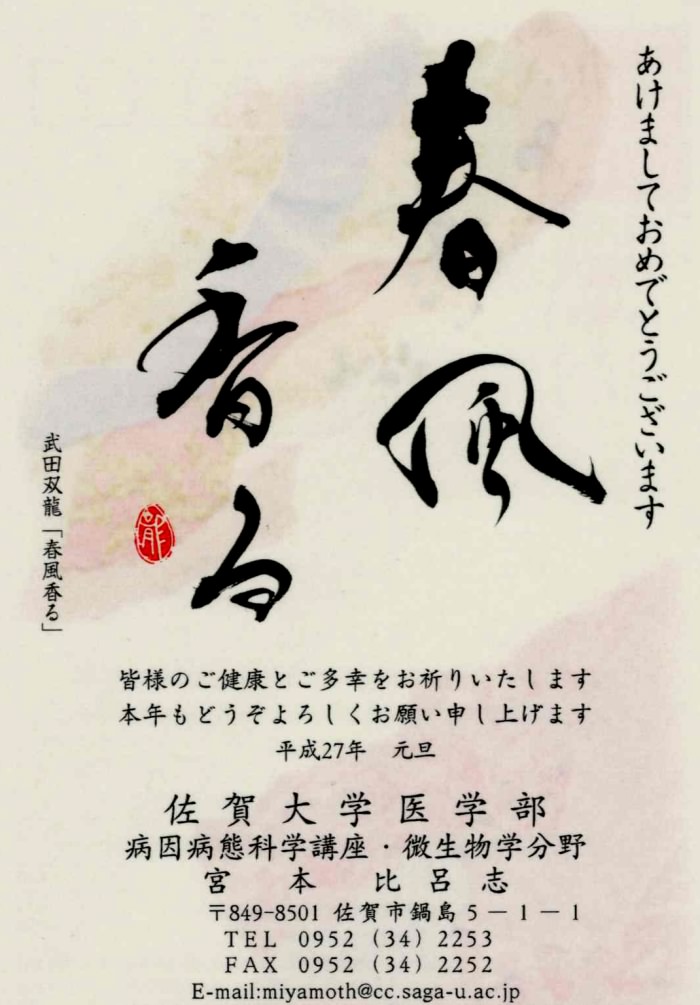 あけましておめでとうございます
春風
香る
龍
武田双龍「春風香る」
皆様のご健康とご多幸をお祈りいたします
本年もどうぞよろしくお願い申し上げます
平成27年　元旦
佐賀大学医学部
病因病態科学講座・微生物学分野
宮本　比呂志
〒849-8501 佐賀市鍋島５－１－１
TEL 0952 (34) 2253
FAX 0952 (34) 2252
E-mail:miyamoth@cc.saga-u.ac.jp